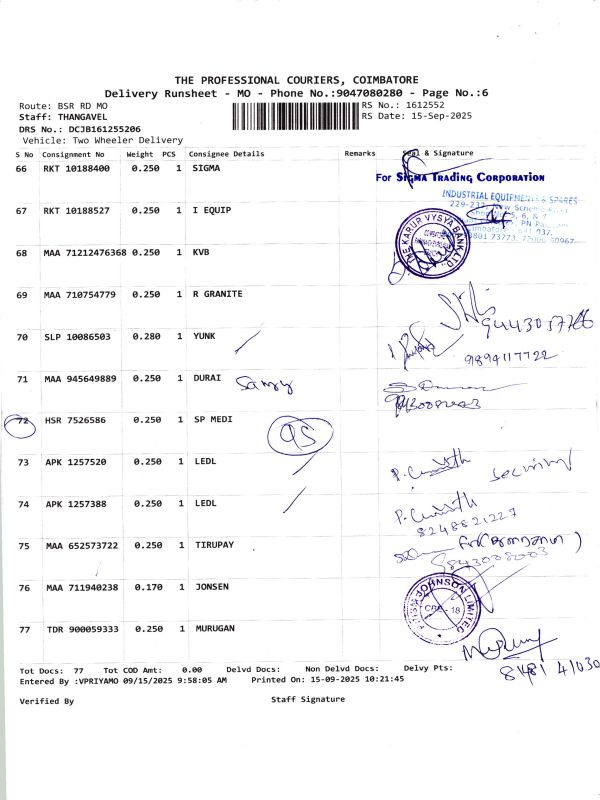 THE PROFESSIONAL COURIERS, COIMBATORE
Delivery Runsheet - MO - Phone No.:9047080280 - Page No.:6
Route: BSR RD MO
RS No.: 1612552
Staff: THANGAVEL
RS Date: 15-Sep-2025
DRS No.: DCJB161255206
Vehicle: Two Wheeler Delivery
S No Consignment No Weight PCS Consignee Details Remarks Seal & Signature
66 RKT 10188400 0.250 1 SIGMA
For SIGMA TRADING CORPORATION
INDUSTRIAL EQUIPMENTS & SPARES
67 RKT 10188527 0.250 1 I EQUIP
THE KARUR VYSYA BANK LTD
68 MAA 71212476368 0.250 1 KVB
69 MAA 710754779 0.250 1 R GRANITE
70 SLP 10086503 0.280 1 YUNK
9894117722
71 MAA 945649889 0.250 1 DURAI
72 HSR 7526586 0.250 1 SP MEDI
95
73 APK 1257520 0.250 1 LEDL
74 APK 1257388 0.250 1 LEDL
8248821227
75 MAA 652573722 0.250 1 TIRUPAY
76 MAA 711940238 0.170 1 JONSEN
JOHNSON LIMITED
77 TDR 900059333 0.250 1 MURUGAN
Tot Docs: 77 Tot COD Amt: 0.00 Delvd Docs: Non Delvd Docs: Delvy Pts:
Entered By :VPRIYAMO 09/15/2025 9:58:05 AM Printed On: 15-09-2025 10:21:45
Verified By Staff Signature